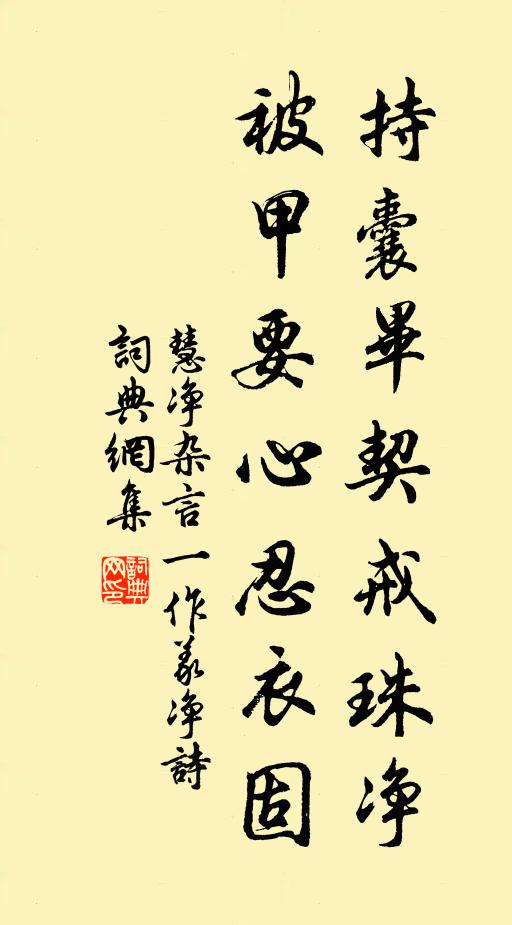 持囊畢契戒珠净
被甲要心忍衣固
慧净杂言一作義净詩
詞典網集
詞典
网印